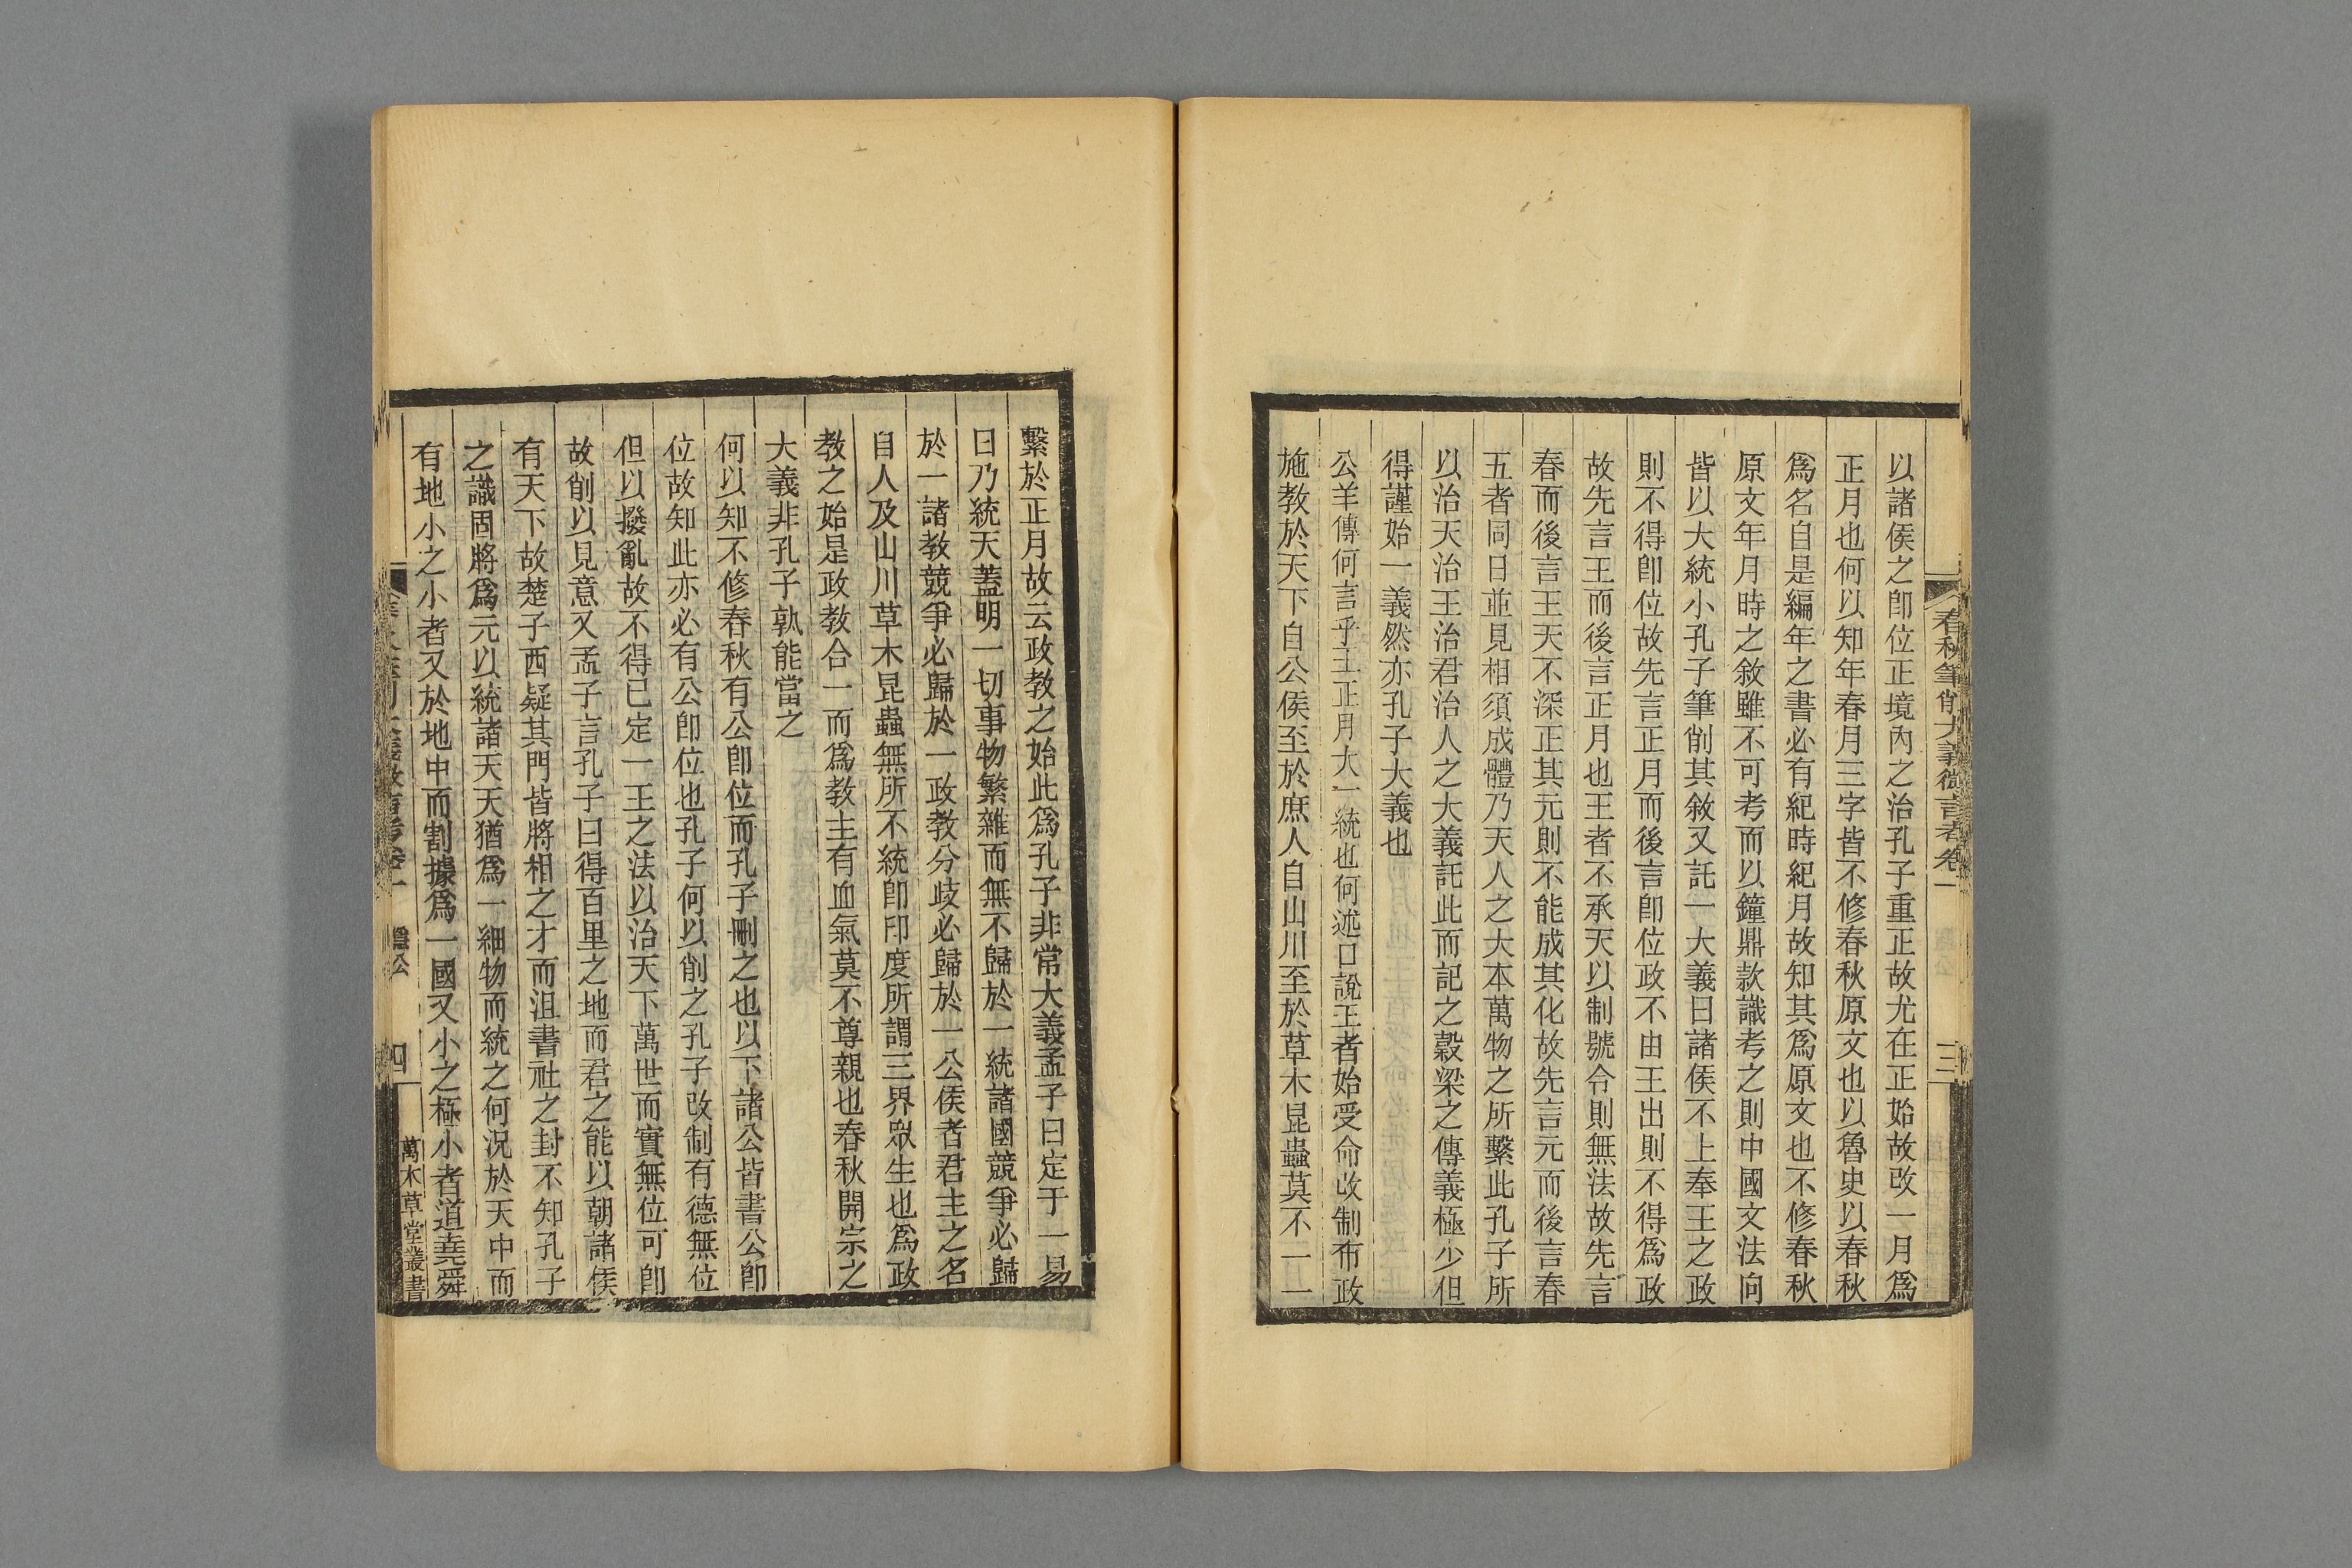 春秋筆削大義微言考卷一
三
以諸侯之卽位正境內之治孔子重正故尤在正始故改一月爲
正月也何以知年春月三字皆不修春秋原文也以魯史以春秋
爲名自是編年之書必有紀時紀月故知其爲原文也不修春秋
原文年月時之敘雖不可考而以鐘鼎款識考之則中國文法向
皆以大統小孔子筆削其敘又託一大義曰諸侯不上奉王之政
則不得卽位故先言正月而後言卽位政不由王出則不得爲政
故先言王而後言正月也王者不承天以制號令則無法故先言
春而後言王天不深正其元則不能成其化故先言元而後言春
五者同日並見相須成體乃天人之大本萬物之所繫此孔子所
以治天治王治君治人之大義託此而記之穀梁之傳義極少但
得謹始一義然亦孔子大義也
公羊傳何言乎王正月大一統也何述口說王者始受命改制布政
施教於天下自公侯至於庶人自山川至於草木昆蟲莫不一一
繫於正月故云政教之始此爲孔子非常大義孟子曰定于一易
曰乃統天蓋明一切事物繁雜而無不歸於一統諸國競爭必歸
於一諸教競爭必歸於一政教分歧必歸於一公侯者君主之名
自人及山川草木昆蟲無所不統卽印度所謂三界眾生也爲政
教之始是政教合一而爲教主有血氣莫不尊親也春秋開宗之
大義非孔子孰能當之
何以知不修春秋有公卽位而孔子刪之也以下諸公皆書公卽
位故知此亦必有公卽位也孔子何以削之孔子改制有德無位
但以撥亂故不得已定一王之法以治天下萬世而實無位可卽
故削以見意又孟子言孔子曰得百里之地而君之能以朝諸侯
有天下故楚子西疑其門皆將相之才而沮書社之封不知孔子
之識固將爲元以統諸天天猶爲一細物而統之何況於天中而
有地小之小者又於地中而割據爲一國又小之極小者道堯舜
隱公
四
萬木草堂叢書